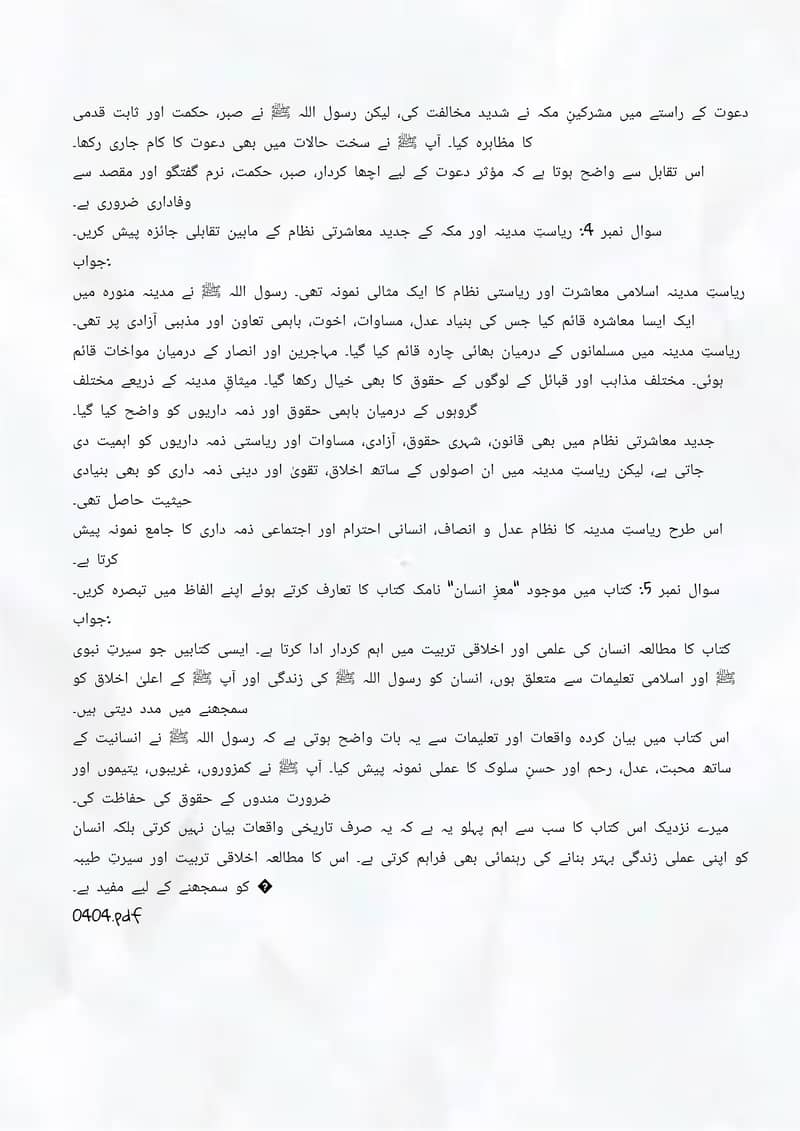 دعوت کے راستے میں مشرکینِ مکہ نے شدید مخالفت کی، لیکن رسول اللہ ﷺ نے صبر، حکمت اور ثابت قدمی
کا مظاہرہ کیا۔ آپ ﷺ نے سخت حالات میں بھی دعوت کا کام جاری رکھا۔
اس تقابل سے واضح ہوتا ہے کہ مؤثر دعوت کے لیے اچھا کردار، صبر، حکمت، نرم گفتگو اور مقصد سے
وفاداری ضروری ہے۔
سوال نمبر 4: ریاستِ مدینہ اور مکہ کے جدید معاشرتی نظام کے مابین تقابلی جائزہ پیش کریں۔
جواب:
ریاستِ مدینہ اسلامی معاشرت اور ریاستی نظام کا ایک مثالی نمونہ تھی۔ رسول اللہ ﷺ نے مدینہ منورہ میں
ایک ایسا معاشرہ قائم کیا جس کی بنیاد عدل، مساوات، اخوت، باہمی تعاون اور مذہبی آزادی پر تھی۔
ریاستِ مدینہ میں مسلمانوں کے درمیان بھائی چارہ قائم کیا گیا۔ مہاجرین اور انصار کے درمیان مواخات قائم
ہوئی۔ مختلف مذاہب اور قبائل کے لوگوں کے حقوق کا بھی خیال رکھا گیا۔ میثاقِ مدینہ کے ذریعے مختلف
گروہوں کے درمیان باہمی حقوق اور ذمہ داریوں کو واضح کیا گیا۔
جدید معاشرتی نظام میں بھی قانون، شہری حقوق، آزادی، مساوات اور ریاستی ذمہ داریوں کو اہمیت دی
جاتی ہے، لیکن ریاستِ مدینہ میں ان اصولوں کے ساتھ اخلاق، تقویٰ اور دینی ذمہ داری کو بھی بنیادی
حیثیت حاصل تھی۔
اس طرح ریاستِ مدینہ کا نظام عدل و انصاف، انسانی احترام اور اجتماعی ذمہ داری کا جامع نمونہ پیش
کرتا ہے۔
سوال نمبر 5: کتاب میں موجود "معزِ انسان" نامک کتاب کا تعارف کرتے ہوئے اپنے الفاظ میں تبصرہ کریں۔
جواب:
کتاب کا مطالعہ انسان کی علمی اور اخلاقی تربیت میں اہم کردار ادا کرتا ہے۔ ایسی کتابیں جو سیرتِ نبوی
ﷺ اور اسلامی تعلیمات سے متعلق ہوں، انسان کو رسول اللہ ﷺ کی زندگی اور آپ ﷺ کے اعلیٰ اخلاق کو
سمجھنے میں مدد دیتی ہیں۔
اس کتاب میں بیان کردہ واقعات اور تعلیمات سے یہ بات واضح ہوتی ہے کہ رسول اللہ ﷺ نے انسانیت کے
ساتھ محبت، عدل، رحم اور حسنِ سلوک کا عملی نمونہ پیش کیا۔ آپ ﷺ نے کمزوروں، غریبوں، یتیموں اور
ضرورت مندوں کے حقوق کی حفاظت کی۔
میرے نزدیک اس کتاب کا سب سے اہم پہلو یہ ہے کہ یہ صرف تاریخی واقعات بیان نہیں کرتی بلکہ انسان
کو اپنی عملی زندگی بہتر بنانے کی رہنمائی بھی فراہم کرتی ہے۔ اس کا مطالعہ اخلاقی تربیت اور سیرتِ طیبہ
� کو سمجھنے کے لیے مفید ہے۔
0404.pdf